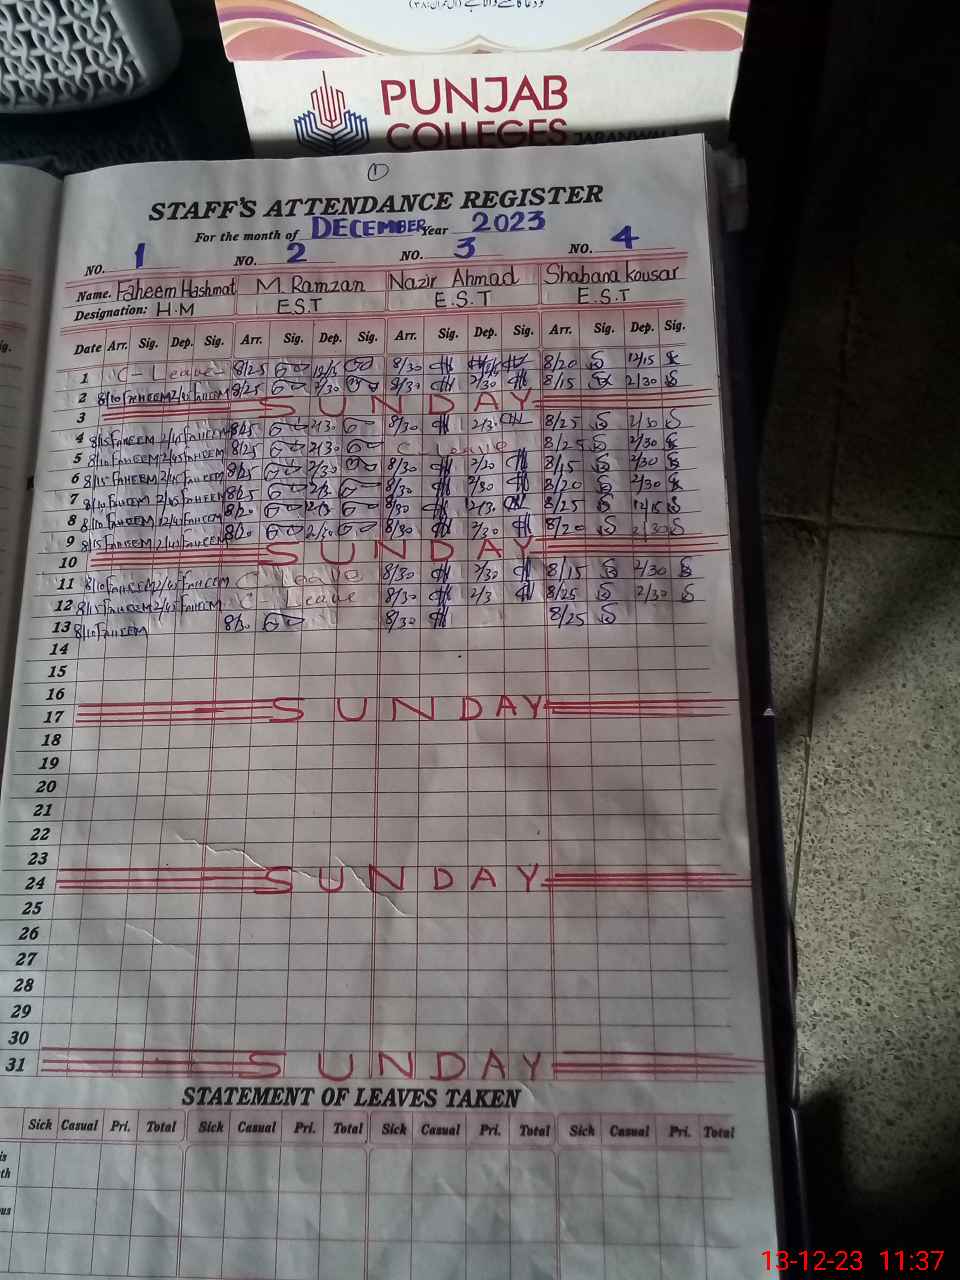 PUNJAB
COLLEGES
JARANWALA
1
STAFF'S ATTENDANCE REGISTER
For the month of DECEMBER Year 2023
NO. 1 NO. 2 NO. 3 NO. 4
Name. Faheem Hashmat M. Ramzan Nazir Ahmad Shabana Kousar
Designation: H.M E.S.T E.S.T E.S.T
Date Arr. Sig. Dep. Sig. Arr. Sig. Dep. Sig. Arr. Sig. Dep. Sig. Arr. Sig. Dep. Sig.
1 C-Leave 8/25 12/15 8/30 8/20 12/15
2 8/10 FAHEEM 2/45 FAHEEM 8/25 2/30 8/30 2/30 8/15 2/30
3 SUNDAY
4 8/15 FAHEEM 2/45 FAHEEM 8/25 2/30 8/30 2/30 8/25 2/30
5 8/10 FAHEEM 2/45 FAHEEM 8/25 2/30 C Leave 8/25 2/30
6 8/15 FAHEEM 2/45 FAHEEM 8/25 2/30 8/30 2/30 8/15 2/30
7 8/10 FAHEEM 2/45 FAHEEM 8/25 8/30 2/30 8/20 2/30
8 8/10 FAHEEM 12/45 FAHEEM 8/20 8/30 8/25 12/15
9 8/15 FAHEEM 2/45 FAHEEM 8/20 2/30 8/30 2/30 8/20 2/30
10 SUNDAY
11 8/10 FAHEEM 2/45 FAHEEM C Leave 8/30 2/30 8/15 2/30
12 8/15 FAHEEM 2/45 FAHEEM C-Leave 8/30 2/3 8/25 2/30
13 8/10 FAHEEM 8/30 8/25
14
15
16
17 SUNDAY
18
19
20
21
22
23
24 SUNDAY
25
26
27
28
29
30
31 SUNDAY
STATEMENT OF LEAVES TAKEN
Sick Casual Pri. Total Sick Casual Pri. Total Sick Casual Pri. Total Sick Casual Pri. Total
13-12-23 11:37